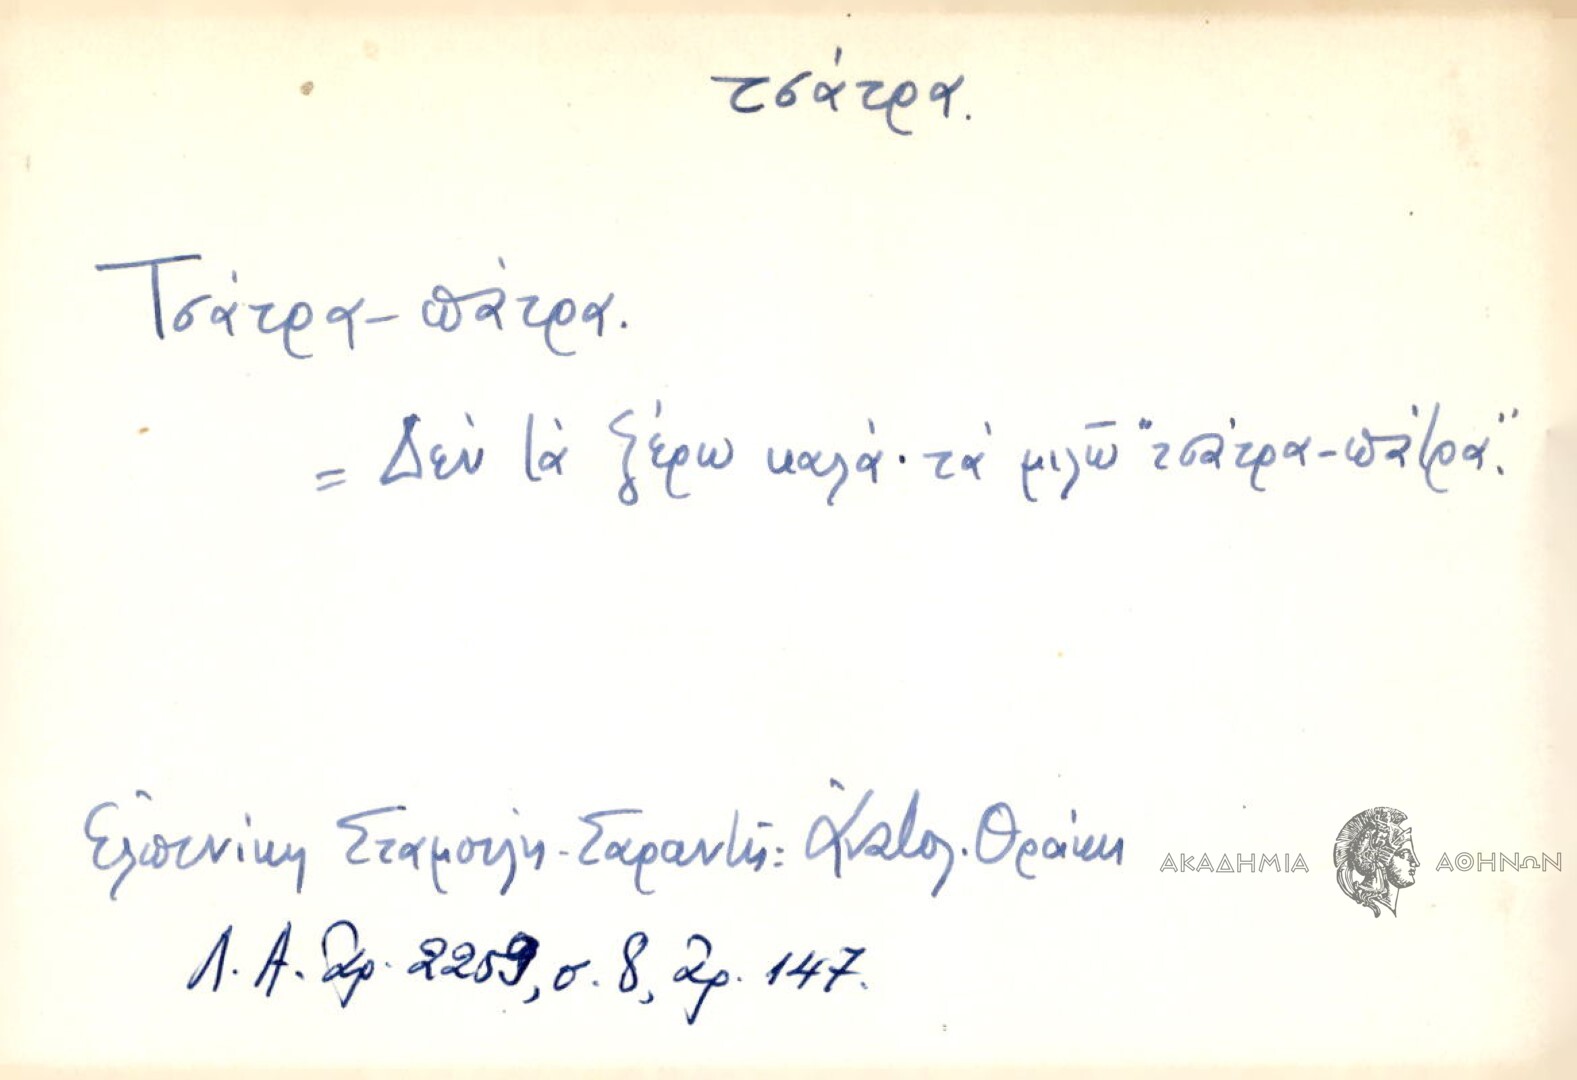 τσάτρα.
Τσάτρα-πάτρα.
= Δὲν τὰ ξέρω καλά· τὰ μιλῶ "τσάτρα-πάτρα".
Ἐλπινίκη Σταμούλη-Σαραντῆ: Ἀνατολ. Θράκη
ΑΚΑΔΗΜΙΑ ΑΘΗΝΩΝ
Λ. Α. ἀρ. 2259, σ. 8, ἀρ. 147.